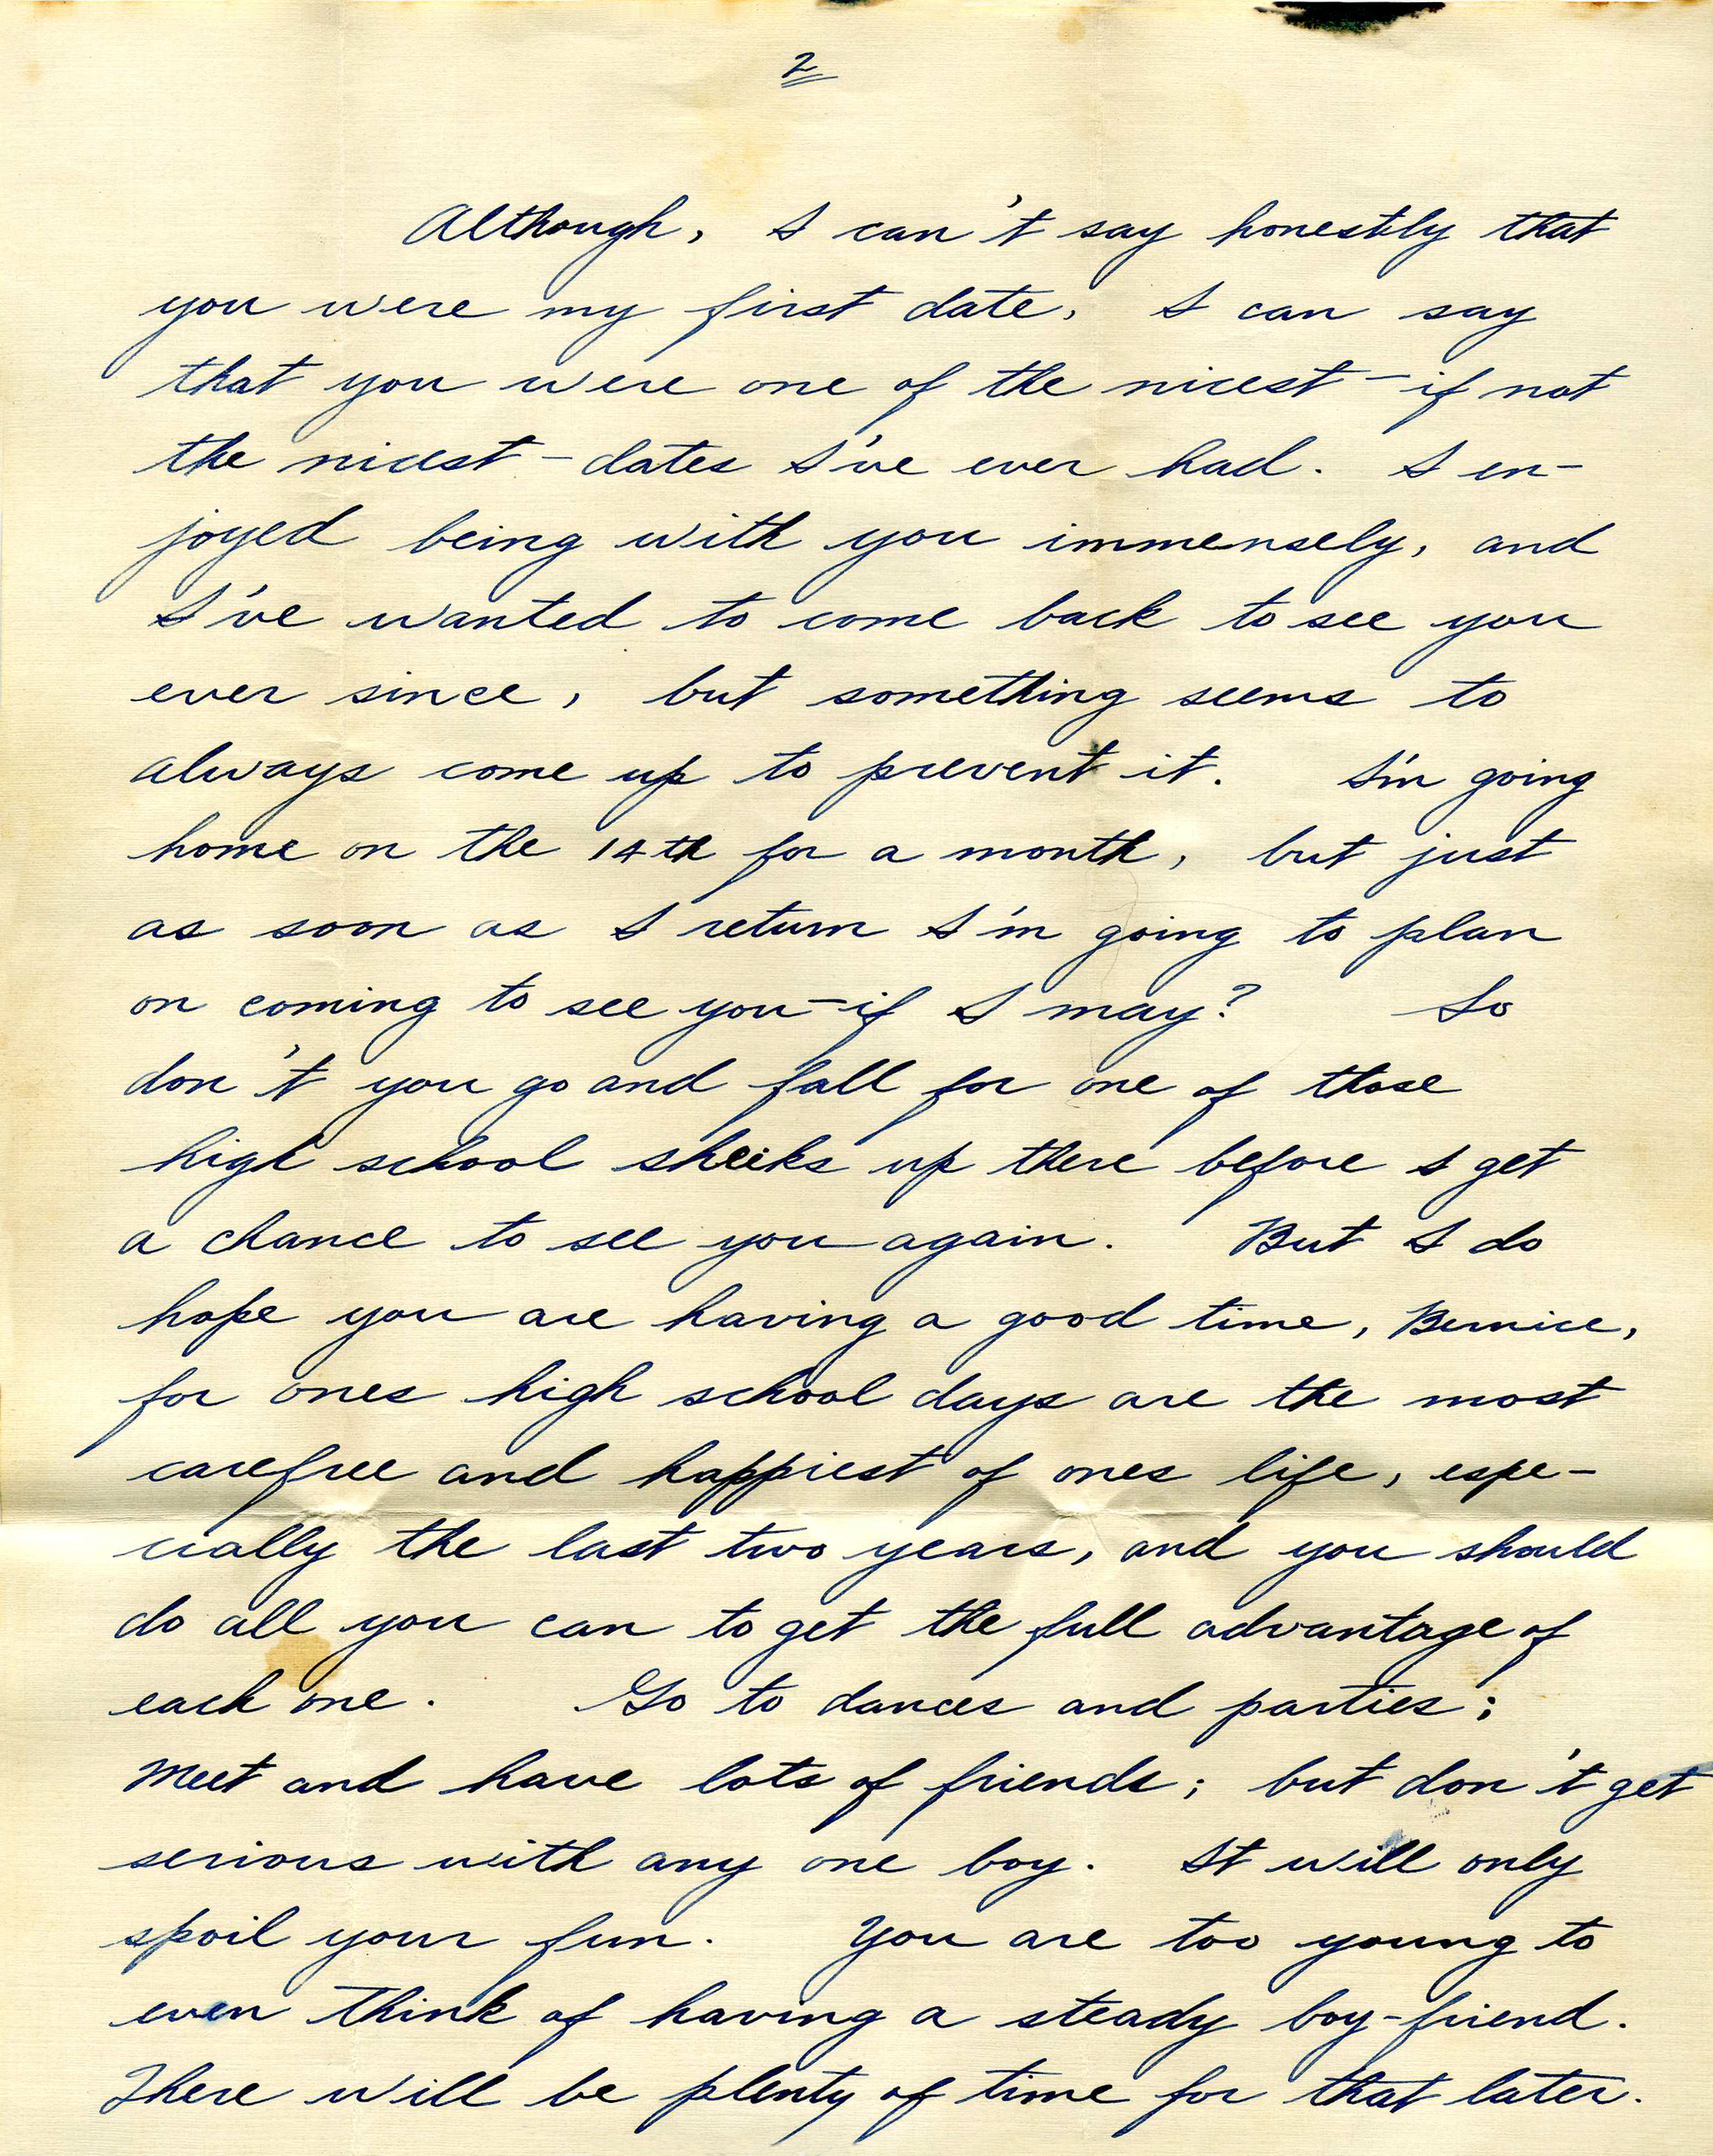 2
Although, I can't say honestly that
you were my first date, I can say
that you were one of the nicest - if not
the nicest - dates I've ever had. I en-
joyed being with you immensely, and
I've wanted to come back to see you
ever since, but something seems to
always come up to prevent it. I'm going
home on the 14th for a month, but just
as soon as I return I'm going to plan
on coming to see you - if I may? So
don't you go and fall for one of those
high school sheiks up there before I get
a chance to see you again. But I do
hope you are having a good time, Bernice,
for ones high school days are the most
carefree and happiest of ones life, espe-
cially the last two years, and you should
do all you can to get the full advantage of
each one. Go to dances and parties;
Meet and have lots of friends; but don't get
serious with any one boy. It will only
spoil your fun. You are too young to
even think of having a steady boy-friend.
There will be plenty of time for that later.